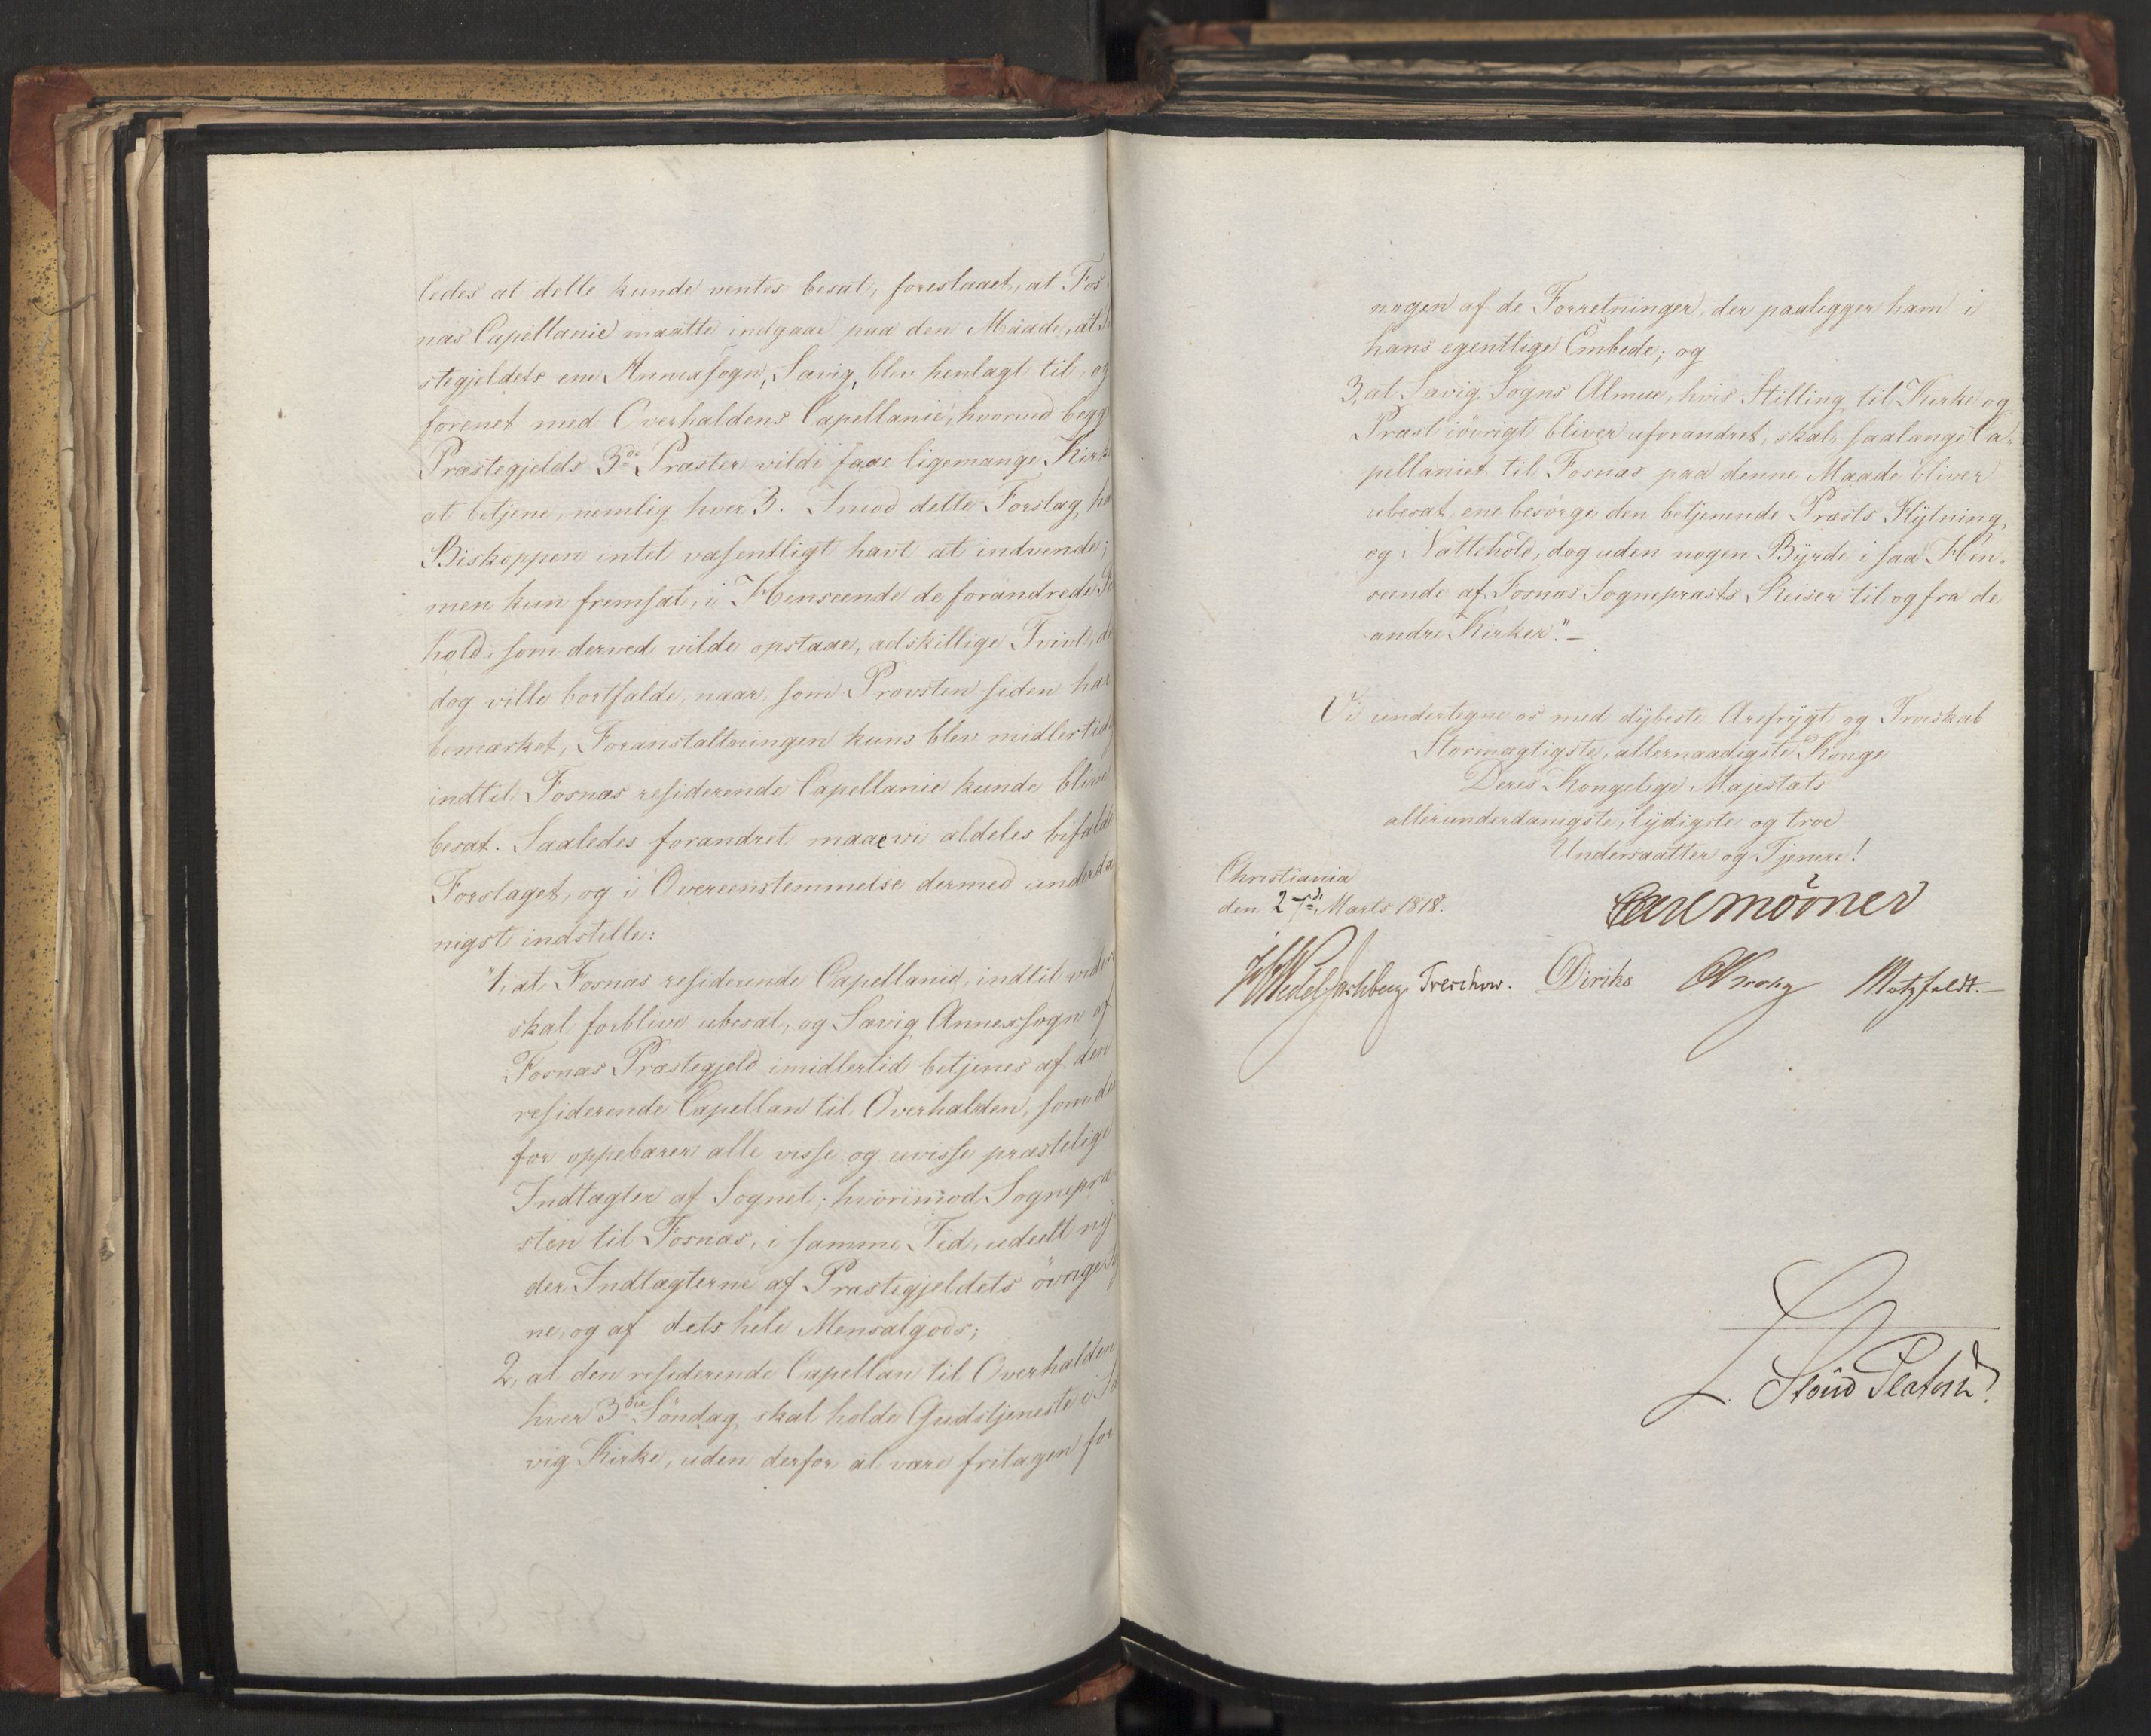 ledes at dette kunde ventes besat, foreslaaet, at Fos
næs Capellanie maatte indgaae paa den Maade, at
stegjeldets ene Annexsogn, Særvig, blev henlagt til, og
forenet med Overhaldens Capellanie, hvorved begg
Præstegjelds 3de Præster vilde faae ligemange Kirk
at betjene, nemlig hver 3. Imod dette Forslag ha
Biskoppen intet væsentligt havt at indvende;
men kun fremsat, i Henseende de forandrede
hold, som derved vilde opstaae, adskillige Tvivl, de
dog ville bortfalde, naar, som Provsten siden har
bemærket, Foranstaltningen kuns blev midlertid
indtil Fosnæs residerende Capellanie kunde blive
besat. Saaledes forandret maae vi aldeles bifalde
Forslaget, og i Overeenstemmelse dermed underda
nigst indstille:
"1, at Fosnæs residerende Capellanie, indtil videre
skal forblive ubesat, og Særvig Annexsogn af
Fosnæs Præstegjeld imidlertid betjenes af den
residerende Capellan til Overhalden, som der
for oppebærer alle visse og uvisse præstelige
Indtægter af Sognet; hvorimod Sognepræ
sten til Fosnæs, i samme Tid, udeelt ny
der Indtægterne af Præstegjeldets övrige
ne, og af dets hele Mensalgods;
2, at den residerende Capellan til Overhalden
hver 3die Söndag skal holde Gudstjeneste i Sæ
vig Kirke, uden derfor at være fritagen for
nogen af de Forretninger, der paaligger ham i
hans egentlige Embede; og
3, at Særvig Sogns Almue, hvis Stilling til Kirke og
Præst iövrigt bliver uforandret, skal, saalænge Ca-
pellaniet til Fosnæs paa denne Maade bliver
ubesat, ene besörge den betjenende Præsts Flytning
og Nattehold, dog uden nogen Byrde i saa Hen-
seende af Fosnæs Sognepræsts Reiser til og fra de
andre Kirker." –
Vi undertegne os med dybeste Ærefrygt og Troeskab
Stormægtigste, allernaadigste Konge
Deres Kongelige Majestæts
allerunderdanigste, lydigste og troe
Undersaatter og Tjenere!
Christiania
den 27de Marts 1818.
Carl Mörner
Wedel Jarlsberg Treschow. Diriks Krohg Motzfeldt. –
L. Stoud Platou